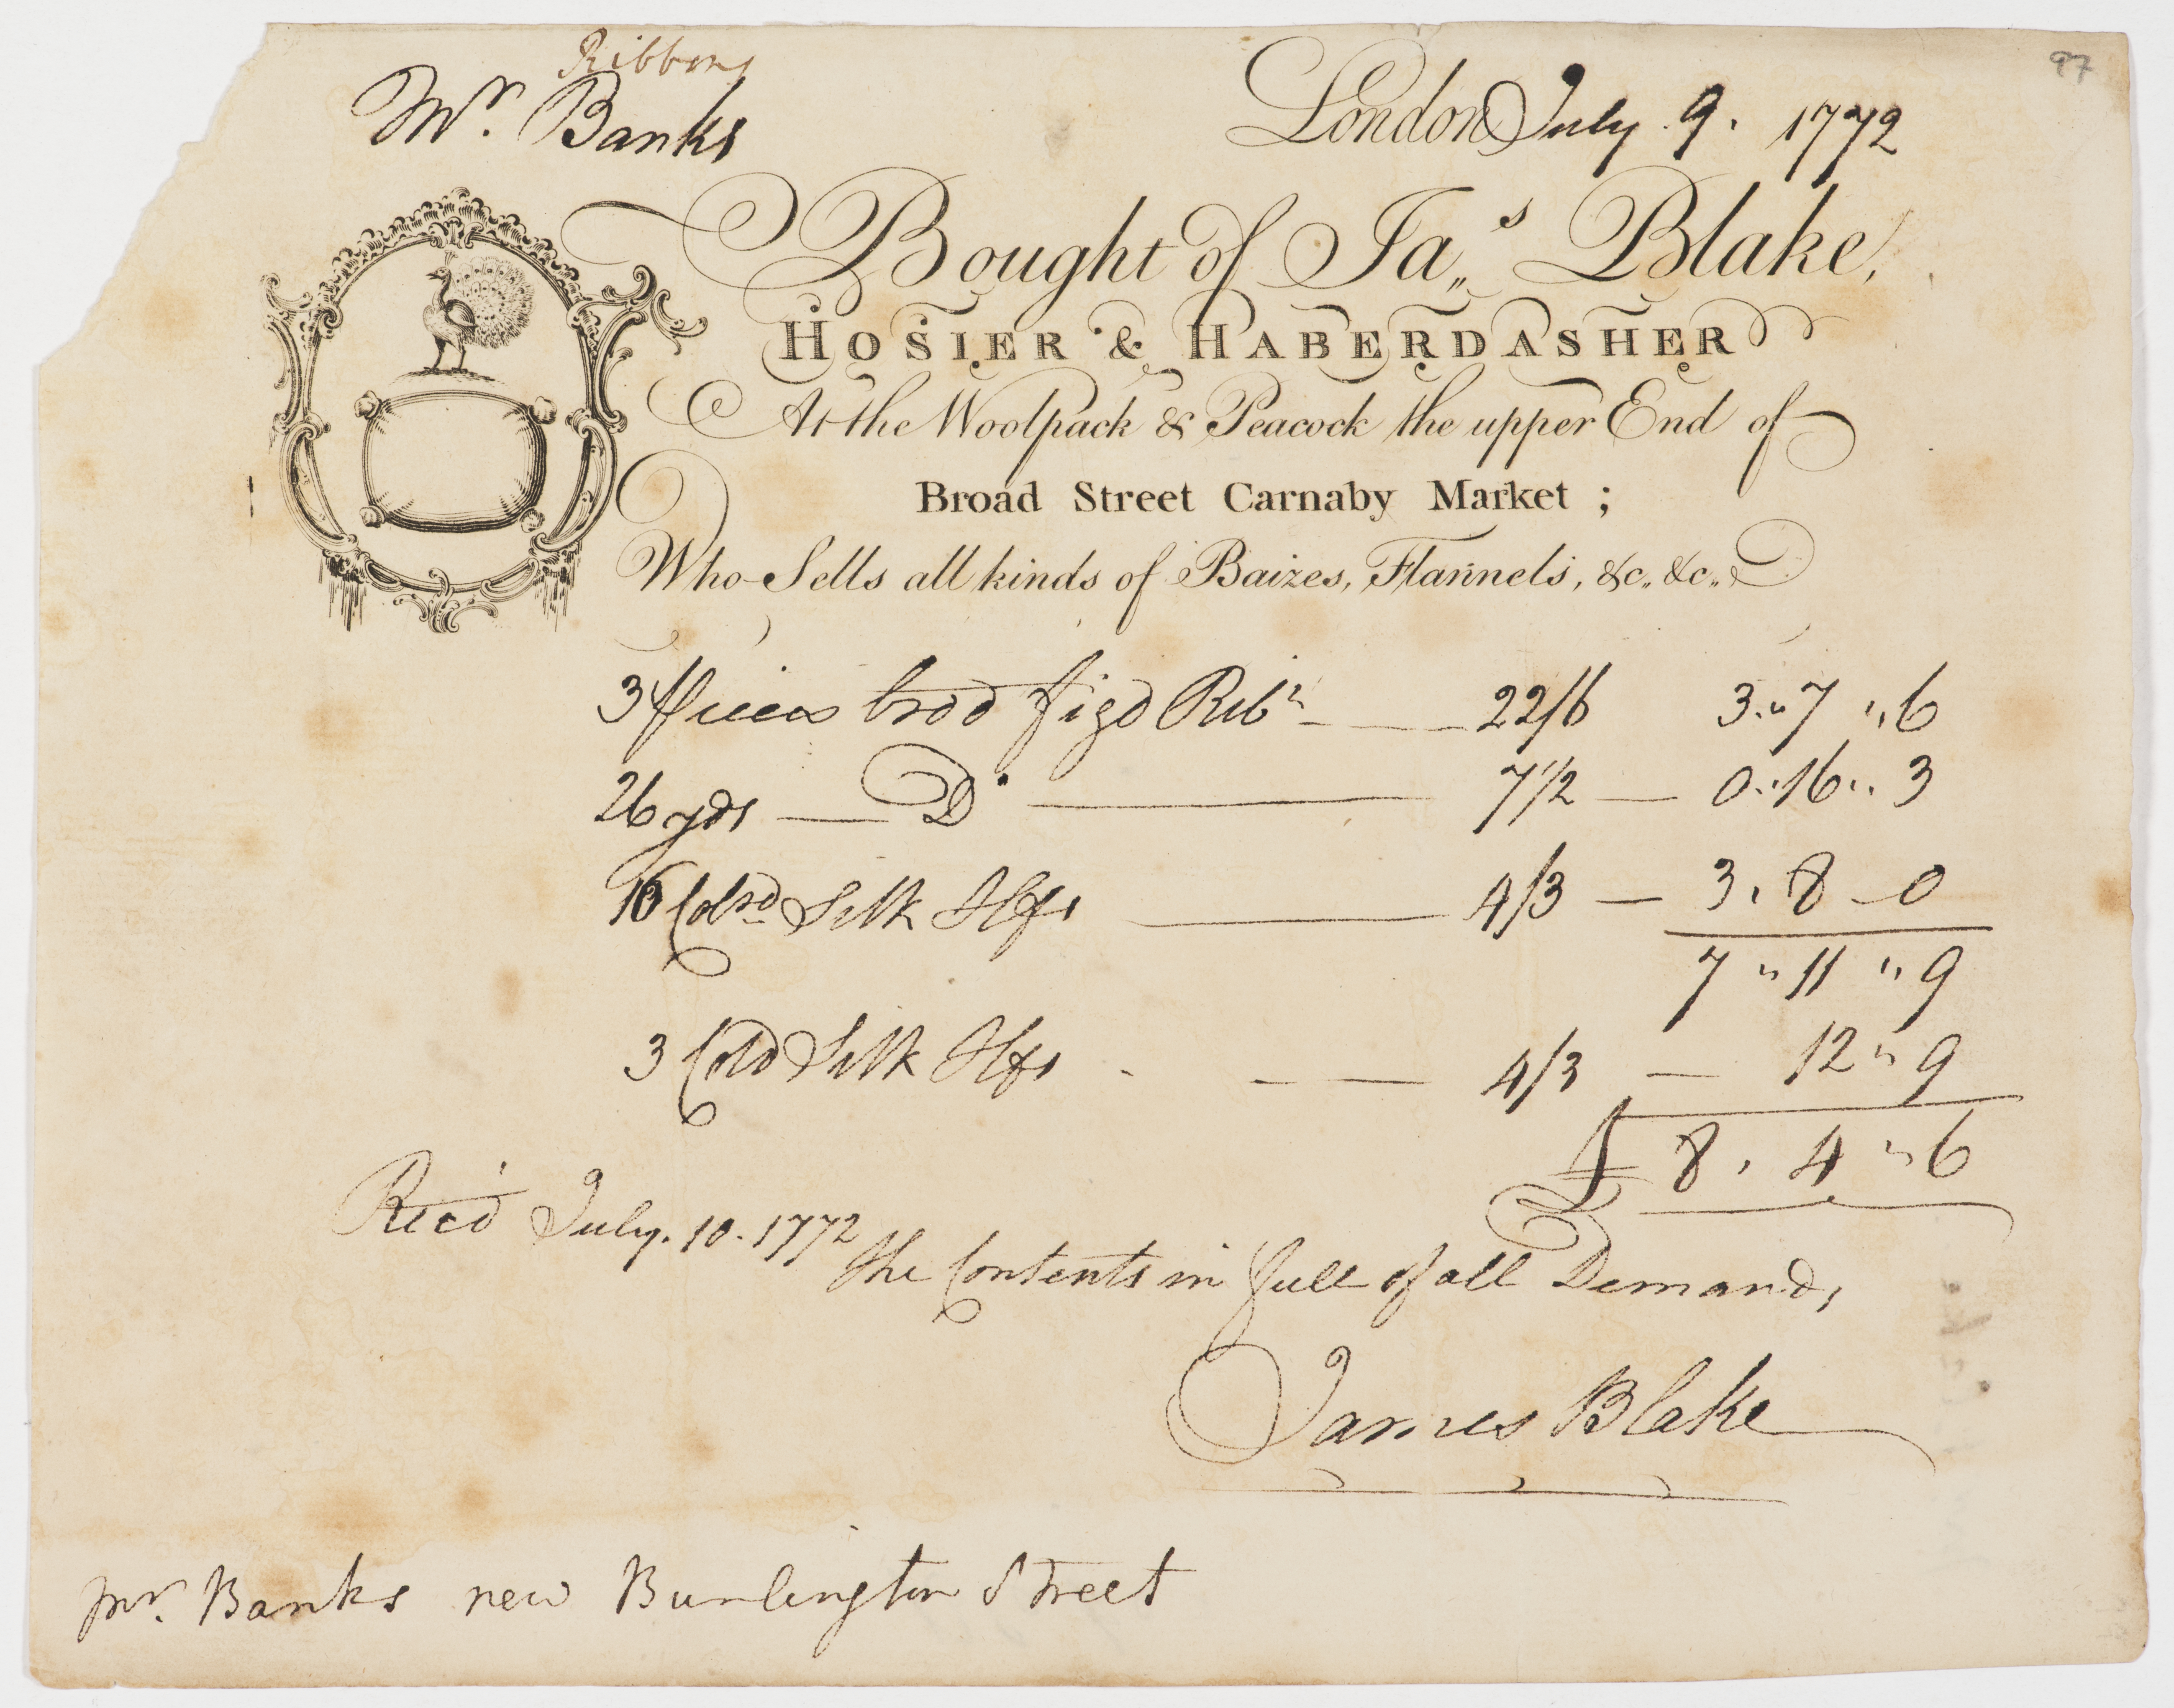 97
Ribbons
Mr. Banks
London July 9. 1772
Bought of Jas Blake,
HOSIER & HABERDASHER
At the Woolpack & Peacock the upper End of
Broad Street Carnaby Market ;
Who Sells all kinds of Baizes, Flannels, &c,, &c,,
3 pieces brod figd Ribn 22/6 3 ,, 7 ,, 6
26 yds — Do — 7 1/2 — 0 ,, 16 ,, 3
16 Colrd Silk Hfs — 4/3 — 3 , 8 - 0
7 ,, 11 ,, 9
3 Cold Silk Hfs - — 4/3 — 12 ,, 9
£ 8 , 4 ,, 6
Recd July. 10. 1772
the Contents in full of all Demands
James Blake
Mr. Banks new Burlington Street